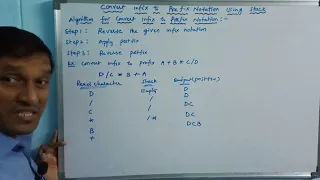 Convert infix to Prefix Notation using Stack
Algorithm for Convert Infix to Prefix notation:-
Step 1: Reverse the given infix notation
Step 2: Apply postfix
Step 3: Reverse postfix
Ex: convert infix to prefix A + B * C/D
D / C * B + A
Read character Stack Output(postfix)
D Empty D
/ / D
C / DC
* /* DC
B DCB
+